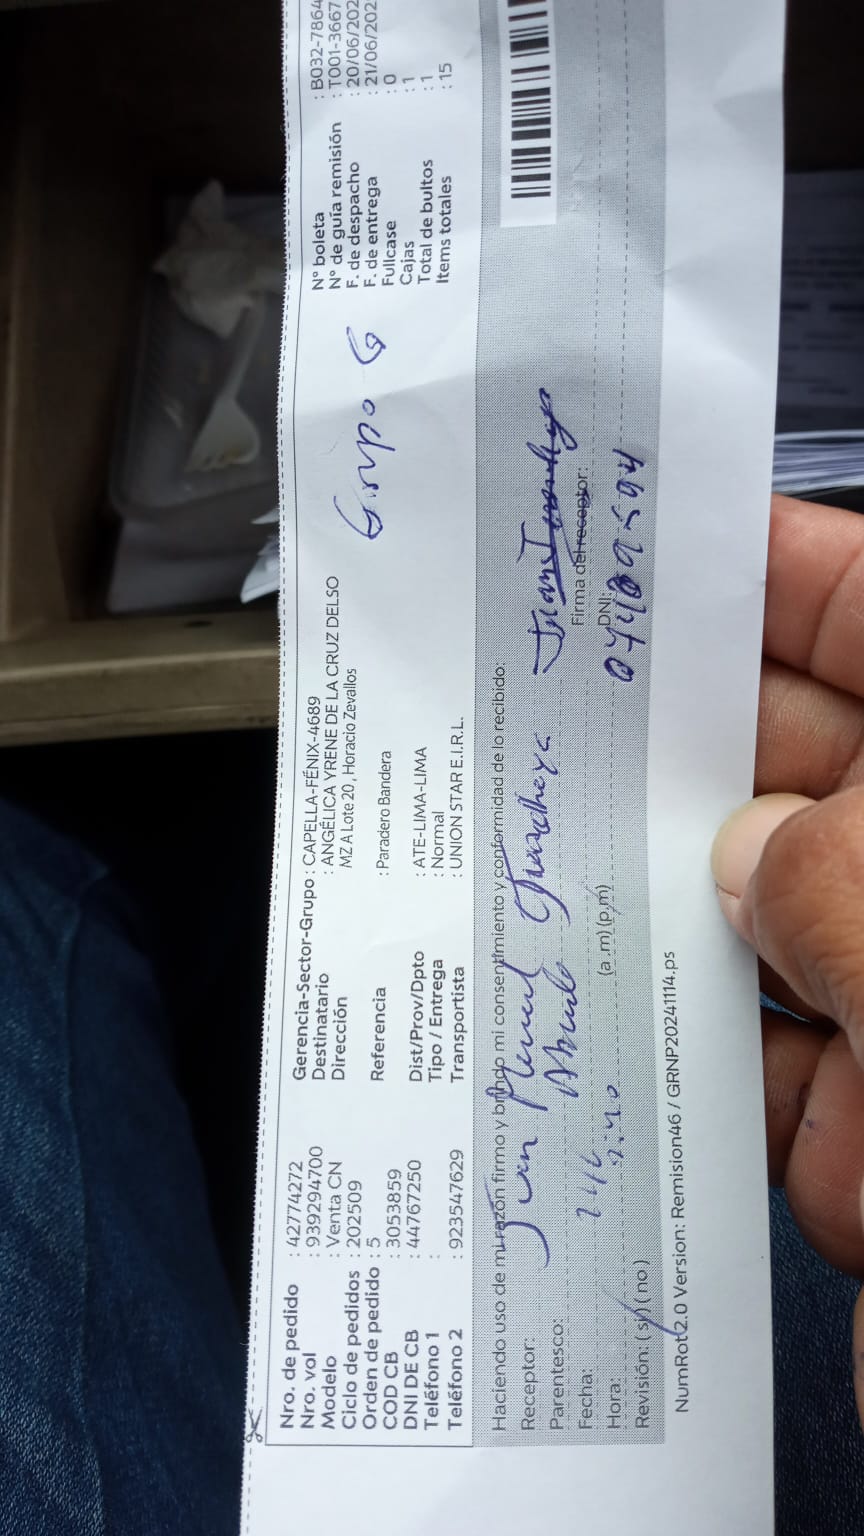 Nro. de pedido : 42774272
Nro. vol : 939294700
Modelo : Venta CN
Ciclo de pedidos : 202509
Orden de pedido : 5
COD CB : 3053859
DNI DE CB : 44767250
Teléfono 1 :
Teléfono 2 : 923547629
Gerencia-Sector-Grupo : CAPELLA-FÉNIX-4689
Destinatario : ANGÉLICA YRENE DE LA CRUZ DELSO
Dirección MZ A Lote 20 , Horacio Zevallos
Referencia : Paradero Bandera
Dist/Prov/Dpto : ATE-LIMA-LIMA
Tipo / Entrega : Normal
Transportista : UNION STAR E.I.R.L.
Grupo G
N° boleta : B032-7864
N° de guía remisión : T001-3667
F. de despacho : 20/06/202
F. de entrega : 21/06/202
Fullcase : 0
Cajas : 1
Total de bultos : 1
Items totales : 15
Haciendo uso de mi razón firmo y brindo mi consentimiento y conformidad de lo recibido:
Receptor: Juan
Parentesco:
Firma del receptor:
Fecha:
DNI:
Hora: (a .m) (p.m)
Revisión: ( si ) ( no )
NumRot 2.0 Version: Remision46 / GRNP20241114.ps